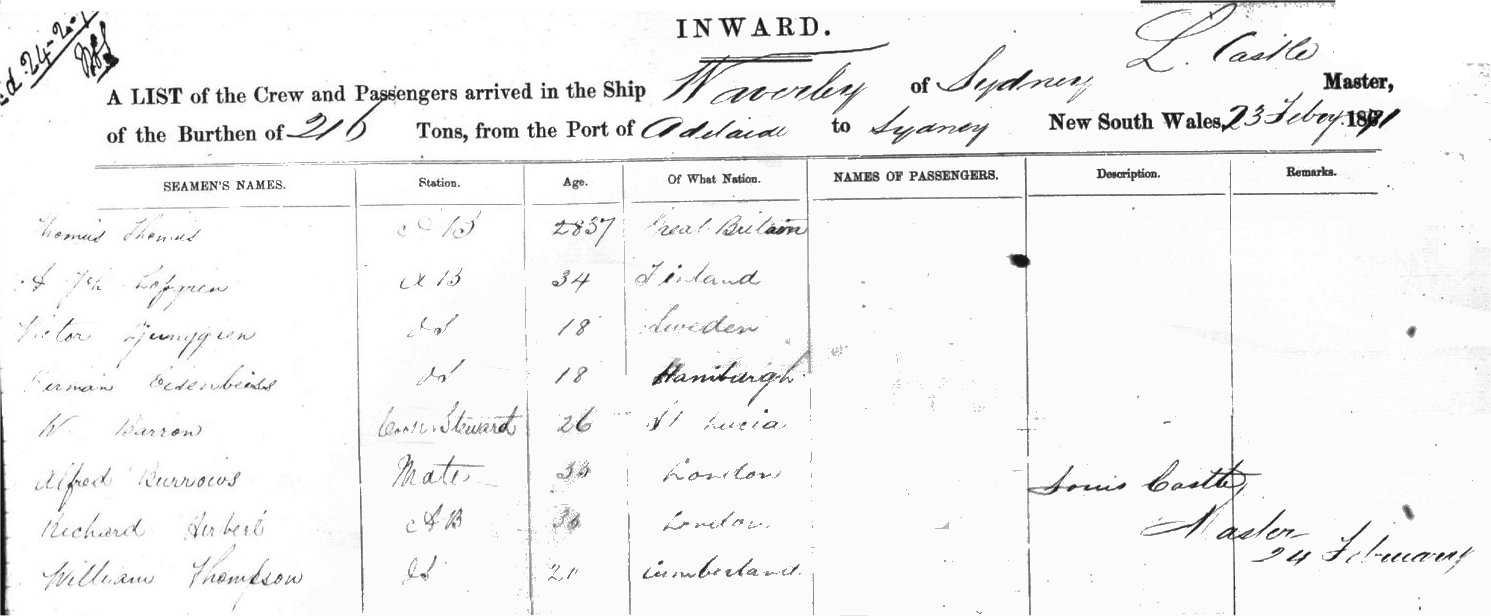 24-2-71
INWARD.
A LIST of the Crew and Passengers arrived in the Ship Waverley of Sydney L. Castle Master,
of the Burthen of 216 Tons, from the Port of Adelaide to Sydney New South Wales, 23 Febry 1871
SEAMEN'S NAMES. Station. Age. Of What Nation. NAMES OF PASSENGERS. Description. Remarks.
Thomas Thomas AB 37 Great Britain
Lofgren AB 34 Finland
Victor Ljunggren OS 18 Sweden
Herman Eisenbeiss OS 18 Hamburgh
W. Barron Cook & Steward 26 St Lucia
Alfred Burrows Mate London Louis Castle
Richard Herbert AB London Master
William Thompson OS Cumberland 24 February